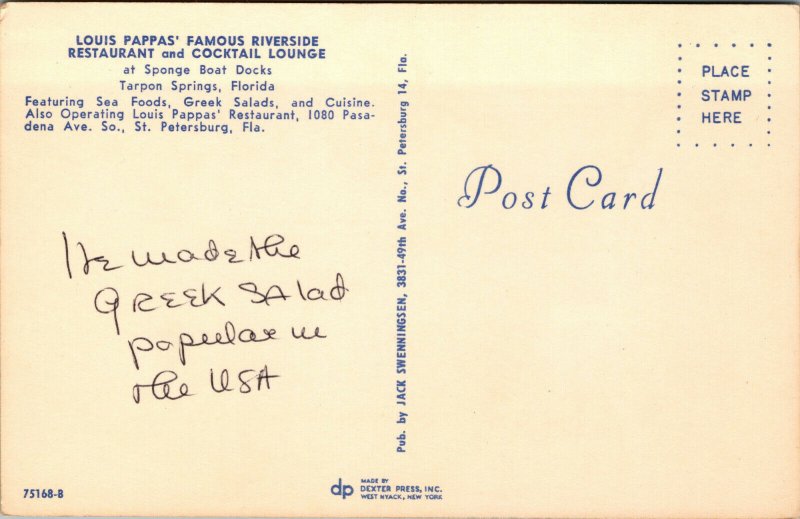 LOUIS PAPPAS' FAMOUS RIVERSIDE
RESTAURANT and COCKTAIL LOUNGE
at Sponge Boat Docks
Tarpon Springs, Florida
Featuring Sea Foods, Greek Salads, and Cuisine.
Also Operating Louis Pappas' Restaurant, 1080 Pasa-
dena Ave. So., St. Petersburg, Fla.
He made the
GREEK SALad
popular in
the USA
75168-B
Pub. by JACK SWENNINGSEN, 3831-49th Ave. No., St. Petersburg 14, Fla.
dp
MADE BY
DEXTER PRESS, INC.
WEST NYACK, NEW YORK
PLACE
STAMP
HERE
Post Card